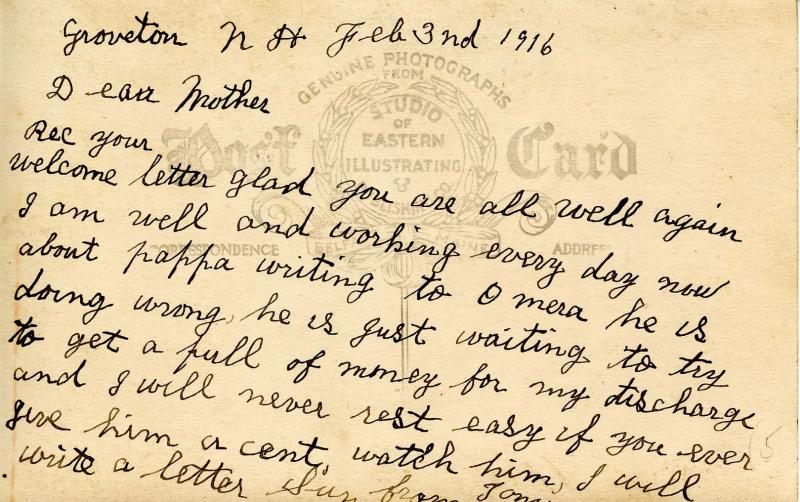 Groveton N H Feb 3nd 1916
GENUINE PHOTOGRAPHS
FROM
STUDIO
OF
EASTERN
ILLUSTRATING
&
Post Card
CORRESPONDENCE
ADDRESS
Dear Mother
Rec your
welcome letter glad you are all well again
I am well and working every day now
about pappa writing to Omera he is
doing wrong, he is just waiting to try
to get a pull of money for my discharge
and I will never rest easy if you ever
give him a cent watch him, I will
write a letter from